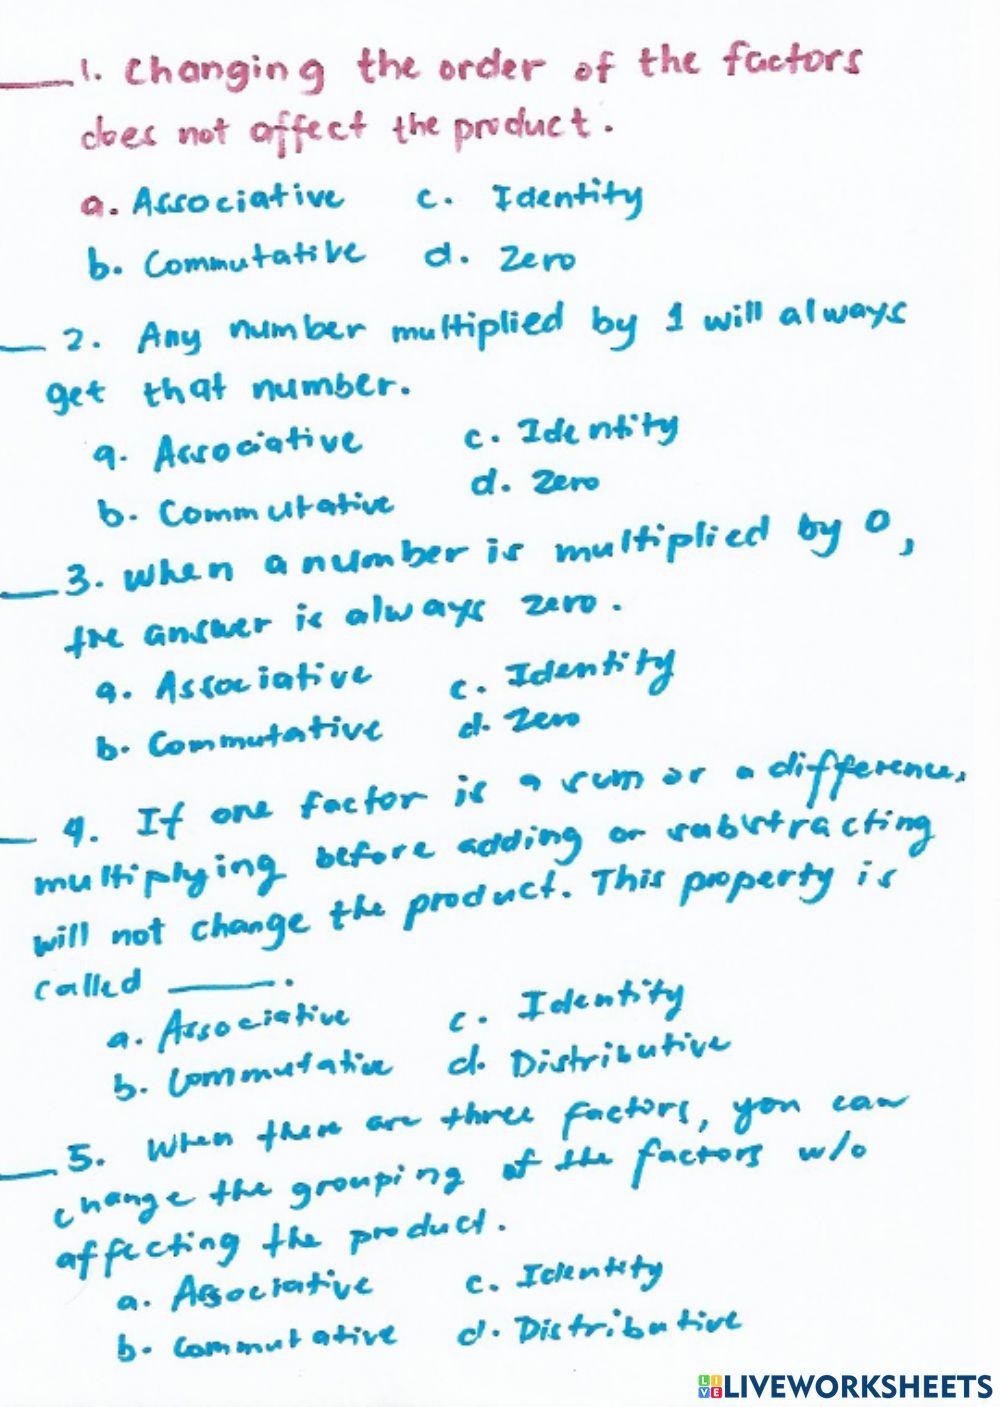 1. Changing the order of the factors
does not affect the product.
a. Associative c. Identity
b. Commutative d. Zero
2. Any number multiplied by 1 will always
get that number.
a. Associative c. Identity
b. Commutative d. Zero
3. When a number is multiplied by 0,
the answer is always zero.
a. Associative c. Identity
b. Commutative d. Zero
4. If one factor is a sum or a difference,
multiplying before adding or substracting
will not change the product. This property is
called ______.
a. Associative c. Identity
b. Commutative d. Distributive
5. When there are three factors, you can
change the grouping of the factors w/o
affecting the product.
a. Associative c. Identity
b. Commutative d. Distributive
LIVE LIVEWORKSHEETS